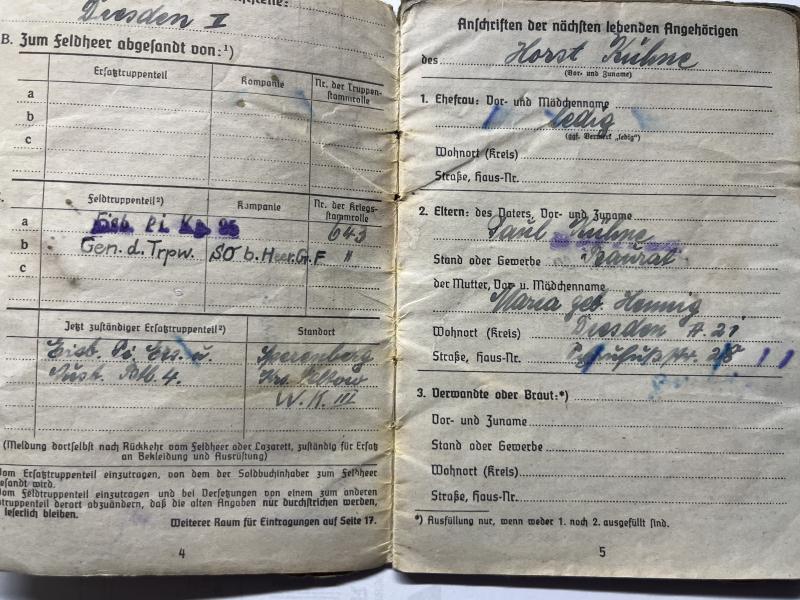 Dresden II
B. Zum Feldheer abgesandt von:¹)
Ersatztruppenteil
Kompanie
Nr. der Truppen-
stammrolle
a
b
c
Feldtruppenteil²)
Kompanie
Nr. der Kriegs-
stammrolle
a Eisb. Pi. Kp. 95 643
b Gen. d. Trpw. SO b. Heer. G. F "
c
Jetzt zuständiger Ersatztruppenteil²)
Standort
Eisb. Pi. Ers. u. Sperenberg
Abt. 4. Krs.
W. K. III
(Meldung dortselbst nach Rückkehr vom Feldheer oder Lazarett, zuständig für Ersatz
an Bekleidung und Ausrüstung)
vom Ersatztruppenteil einzutragen, von dem der Soldbuchinhaber zum Feldheer
gesandt wird.
vom Feldtruppenteil einzutragen und bei Versetzungen von einem zum anderen
truppenteil derart abzuändern, daß die alten Angaben nur durchstrichen werden,
leserlich bleiben.
Weiterer Raum für Eintragungen auf Seite 17.
4
Anschriften der nächsten lebenden Angehörigen
des Horst Kühne
(Vor- und Zuname)
1. Ehefrau: Vor- und Mädchenname
ledig
(ggf. Vermerk „ledig")
Wohnort (Kreis)
Straße, Haus-Nr.
2. Eltern: des Vaters, Vor- und Zuname
Paul Kühne
Stand oder Gewerbe Baurat
der Mutter, Vor- u. Mädchenname
Maria geb. Hennig
Wohnort (Kreis) Dresden A. 21
Straße, Haus-Nr.
3. Verwandte oder Braut:*)
Vor- und Zuname
Stand oder Gewerbe
Wohnort (Kreis)
Straße, Haus-Nr.
*) Ausfüllung nur, wenn weder 1. noch 2. ausgefüllt sind.
5